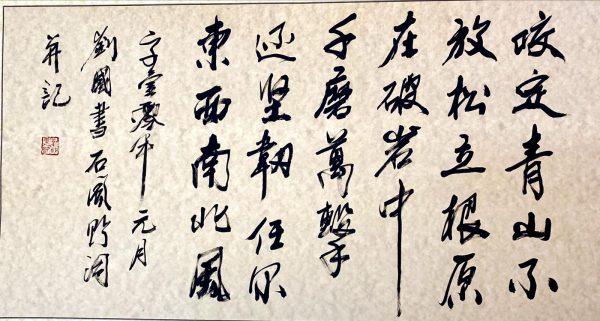 咬定青山不
放松立根原
在破岩中
千磨萬擊
还坚韧任尔
東西南北風
元月
劉國書石風
并記